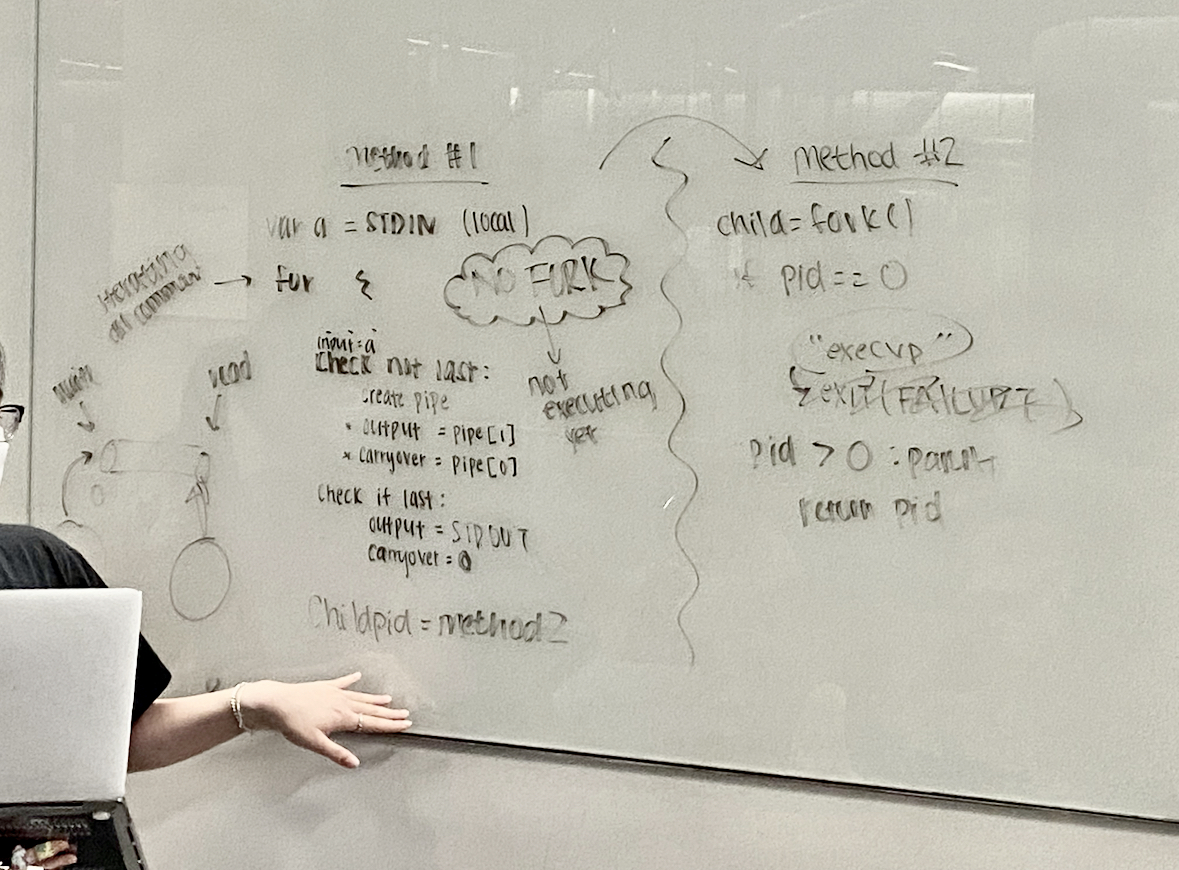 Method #1
var a = STDIN (local)
Iterating
all command
→ for {
NO FORK
not
executing
yet
input = a
Check not last:
create pipe
* output = pipe[1]
* carryover = pipe[0]
Check if last:
output = STDOUT
carryover = 0
Childpid = method2
read
Method #2
child = fork()
if pid == 0
"execvp"
{ exit(FAILURE);
pid > 0 : parent
return pid